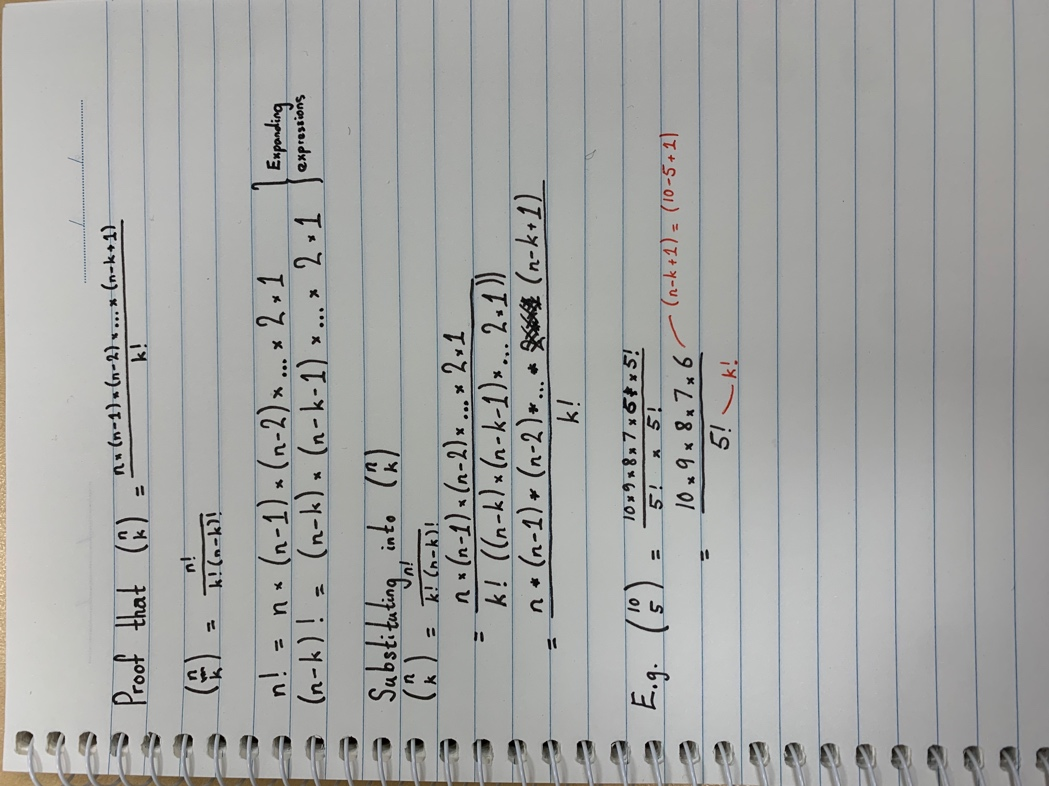 Proof that (n k) = n×(n-1)×(n-2)×...×(n-k+1) / k!
(n k) = n! / k!(n-k)!
n! = n × (n-1) × (n-2) × ... × 2 × 1 } Expanding
(n-k)! = (n-k) × (n-k-1) × ... × 2 × 1 } expressions
Substituting into (n k)
(n k) = n! / k!(n-k)!
= n × (n-1) × (n-2) × ... × 2×1 / k! ((n-k)×(n-k-1)×... 2×1))
= n * (n-1) * (n-2) * ... * (n-k+1) / k!
E.g. (10 5) = 10×9×8×7×6×5! / 5! × 5!
= 10 × 9 × 8 × 7 × 6 / 5!
(n-k+1) = (10-5+1)
k!